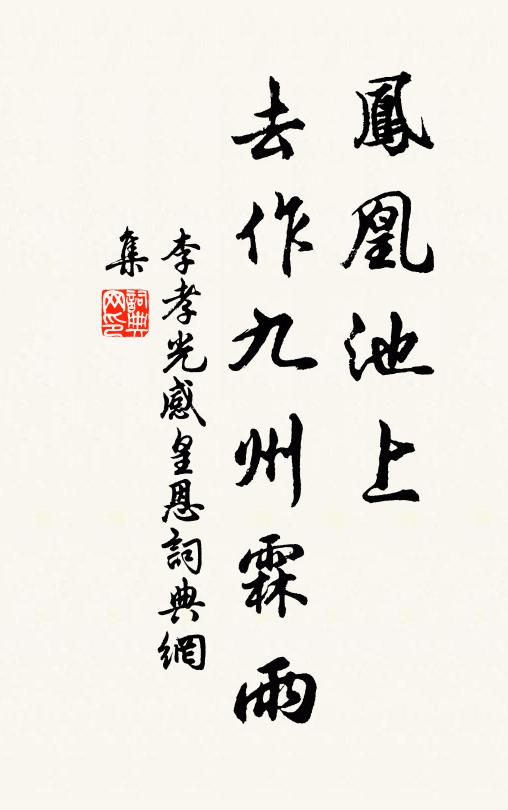 鳳凰池上
去作九州霖雨
李孝光感皇恩詞典網
集
詞典
网印